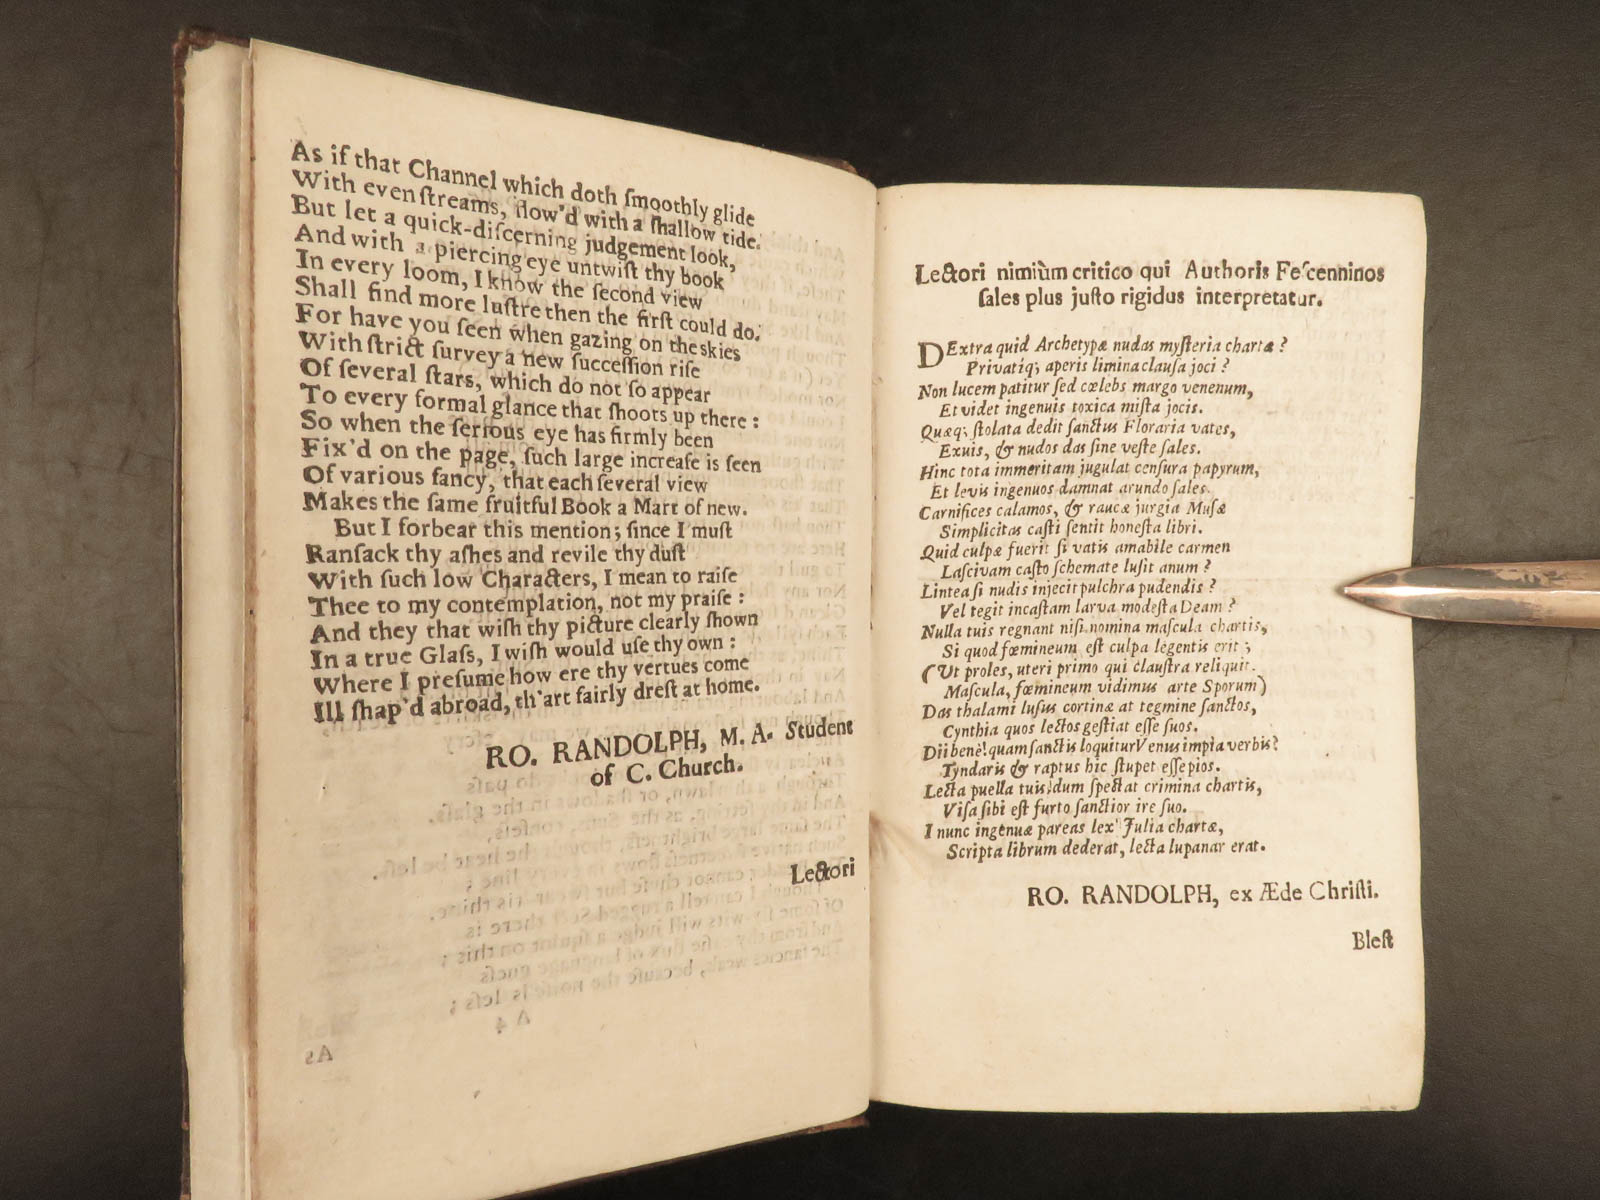 As if that Channel which doth ſmoothly glide
With even ſtreams, flow'd with a ſhallow tide.
But let a quick-diſcerning judgement look,
And with a piercing eye untwiſt thy book
In every loom, I know the ſecond view
Shall find more luſtre then the firſt could do.
For have you ſeen when gazing on the skies
With ſtrict ſurvey a new ſucceſſion riſe
Of ſeveral ſtars, which do not ſo appear
To every formal glance that ſhoots up there :
So when the ſerious eye has firmly been
Fix'd on the page, ſuch large increaſe is ſeen
Of various fancy, that each ſeveral view
Makes the ſame fruitful Book a Mart of new.
But I forbear this mention; ſince I muſt
Ranſack thy aſhes and revile thy duſt
With ſuch low Characters, I mean to raiſe
Thee to my contemplation, not my praiſe :
And they that wiſh thy picture clearly ſhown
In a true Glaſs, I wiſh would uſe thy own :
Where I preſume how ere thy vertues come
Ill ſhap'd abroad, th'art fairly dreſt at home.
RO. RANDOLPH, M. A. Student
of C. Church.
Lectori
Lectori nimiùm critico qui Authoris Feſcenninos
ſales plus juſto rigidus interpretatur.
DExtra quid Archetypæ nudas myſteria chartæ ?
Privatiq; aperis limina clauſa joci ?
Non lucem patitur ſed cœlebs margo venenum,
Et videt ingenuis toxica miſta jocis.
Quæq; ſtolata dedit ſanctus Floraria vates,
Exuis, & nudos das ſine veſte ſales.
Hinc tota immeritam jugulat cenſura papyrum,
Et levis ingenuos damnat arundo ſales.
Carnifices calamos, & raucæ jurgia Muſæ
Simplicitas caſti ſentit honeſta libri.
Quid culpæ fuerit ſi vatis amabile carmen
Laſcivam caſto ſchemate luſit anum ?
Lintea ſi nudis injecit pulchra pudendis ?
Vel tegit incaſtam larva modeſta Deam ?
Nulla tuis regnant niſi nomina maſcula chartis,
Si quod fœmineum eſt culpa legentis erit ;
(Ut proles, uteri primo qui clauſtra reliquit.
Maſcula, fœmineum vidimus arte Sporum)
Das thalami luſus cortinæ at tegmine ſanctos,
Cynthia quos lectos geſtiat eſſe ſuos.
Dii benè! quam ſanctis loquitur Venus impia verbis?
Tyndaris & raptus hic ſtupet eſſe pios.
Lecta puella tuis dum ſpectat crimina chartis,
Viſa ſibi eſt furto ſanctior ire ſuo.
I nunc ingenuæ pareas lex Julia chartæ,
Scripta librum dederat, lecta lupanar erat.
RO. RANDOLPH, ex Æde Chriſti.
Bleſt